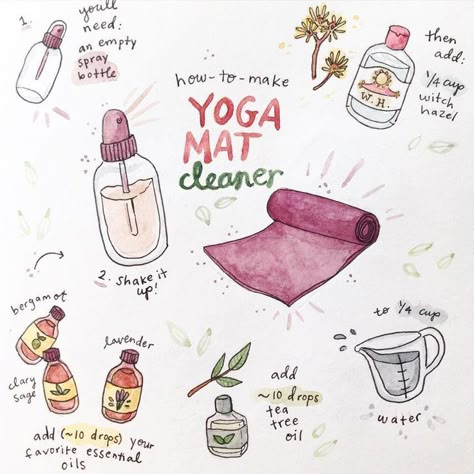 1.
you'll
need:
an empty
spray
bottle
how-to-make
YOGA
MAT
cleaner
then
add:
1/4 cup
witch
hazel
W.H.
2. shake it
up!
to 1/4 cup
water
add
~10 drops
tea
tree
oil
bergamot
lavender
clary
sage
add (~10 drops) your
favorite essential
oils